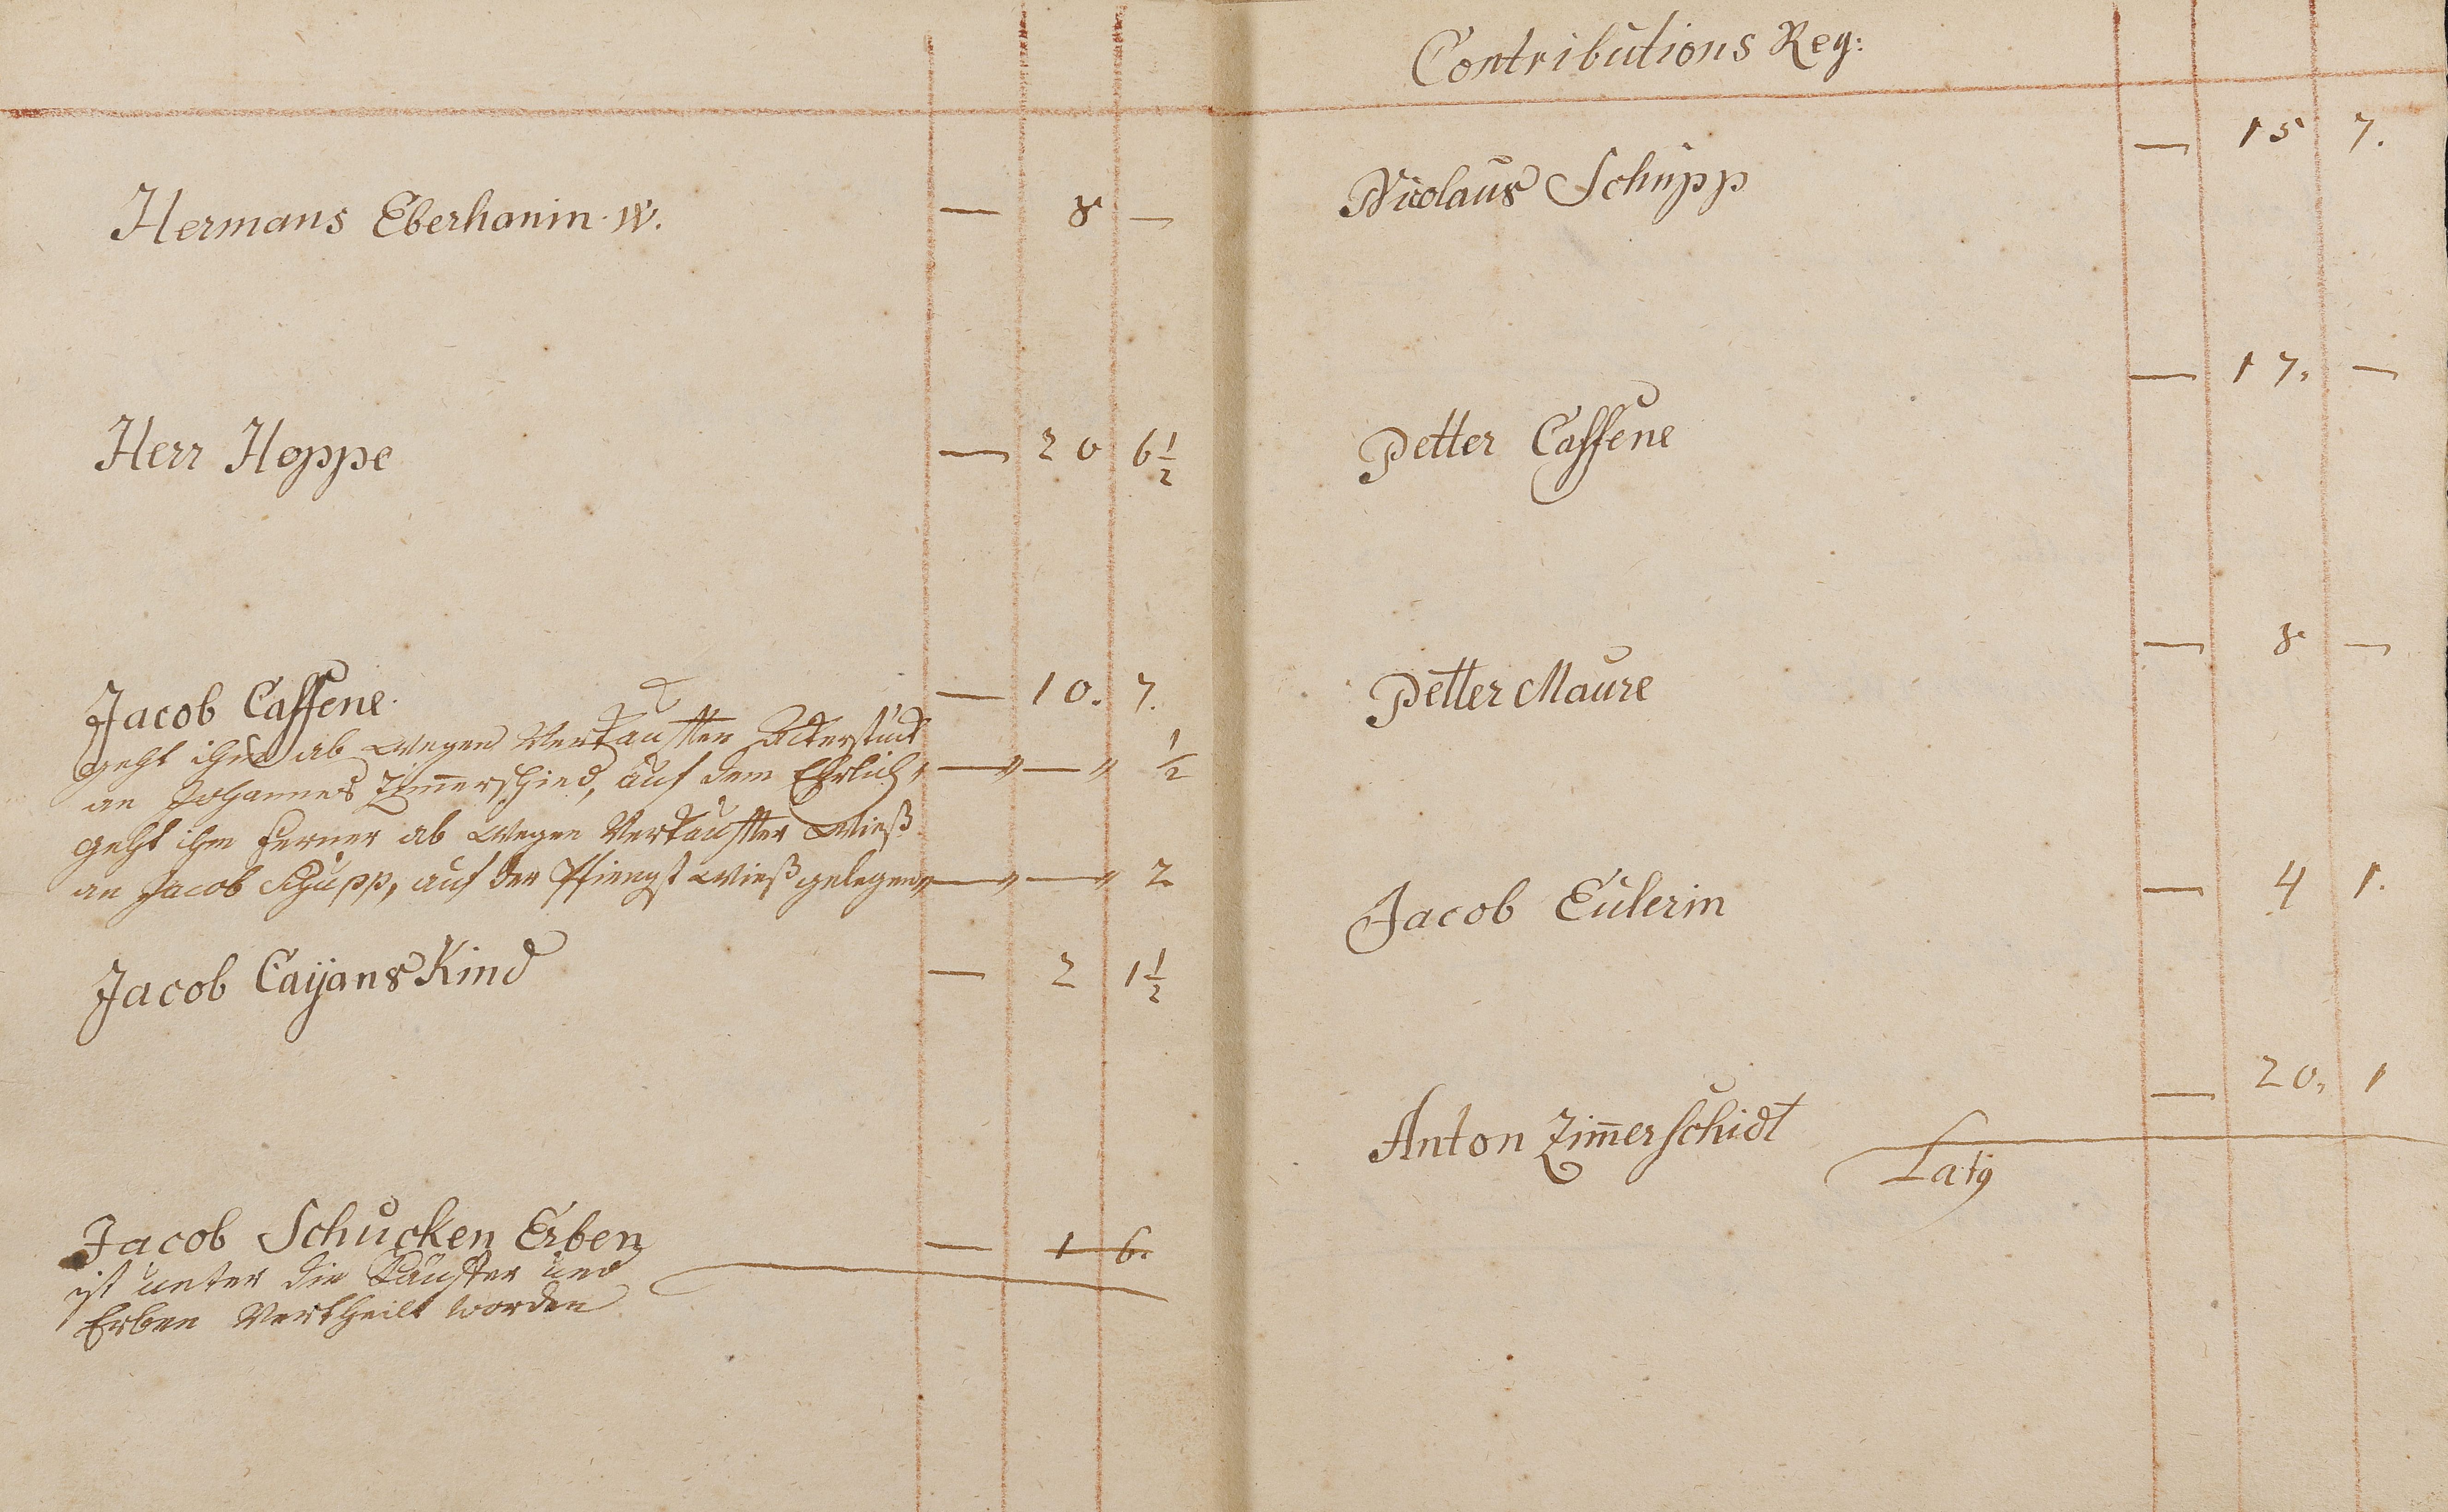 Hermans Eberhanin W. — 8 —
Herr Hoppe — 20 6 1/2
Jacob Caffene. — 10. 7.
geht ihm ab wegen verkaufften Ackerstück
an Johannes Zim̄erschied, auf dem Ehrlich, — „ — „ 1/2
geht ihm ferner ab wegen verkauffter Wieß
an Jacob Schupp, auf der Pfiengst Wieß gelegen „ — „ — „ 2.
Jacob Caÿans Kind — 2 1 1/2
Jacob Schucken Erben — 1 6.
ist unter die Käuffer und
Erben vertheilt worden
Contributions Reg:
Nicolaus Schupp — 15 7.
Petter Caffene — 17, —
Petter Maure — 8 —
Jacob Eulerin — 4 1.
Anton Zim̄erschidt — 20, 1
Latg